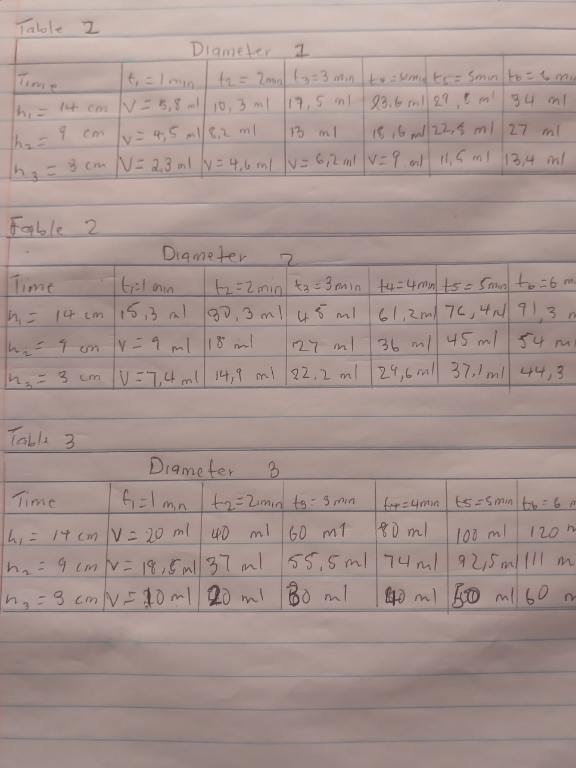 Table 1
Diameter 1
Time t₁ = 1 min t₂ = 2min t₃ = 3 min t₄ = 4min t₅ = 5min t₆ = 6 min
h₁ = 14 cm V = 5,8 ml 10,3 ml 17,5 ml 23.6 ml 29,8 ml 34 ml
h₂ = 9 cm V = 4,5 ml 8,2 ml 13 ml 18,6 ml 22,8 ml 27 ml
h₃ = 3 cm V = 2,3 ml V = 4,6 ml V = 6,2 ml V = 9 ml 11,5 ml 13,4 ml
Table 2
Diameter 2
Time t₁=1 min t₂ = 2min t₃ = 3min t4 = 4min t5 = 5min t₆ = 6 m
h₁ = 14 cm 15,3 ml 30,3 ml 45 ml 61,2ml 76,4ml 91,3 m
h₂ = 9 cm V = 9 ml 18 ml 27 ml 36 ml 45 ml 54 m
h₃ = 3 cm V = 7,4ml 14,9 ml 22.2 ml 29,6ml 37,1ml 44,3
Table 3
Diameter 3
Time t₁=1 min t₂=2min t₃ = 3min t4=4min t5=5min t₆ = 6 m
h₁ = 14 cm V = 20 ml 40 ml 60 ml 80 ml 100 ml 120 m
h₂ = 9 cm V = 18,5ml 37 ml 55,5 ml 74 ml 92,5ml 111 m
h₃ = 3 cm V = 10 ml 20 ml 30 ml 40 ml 50 ml 60 m